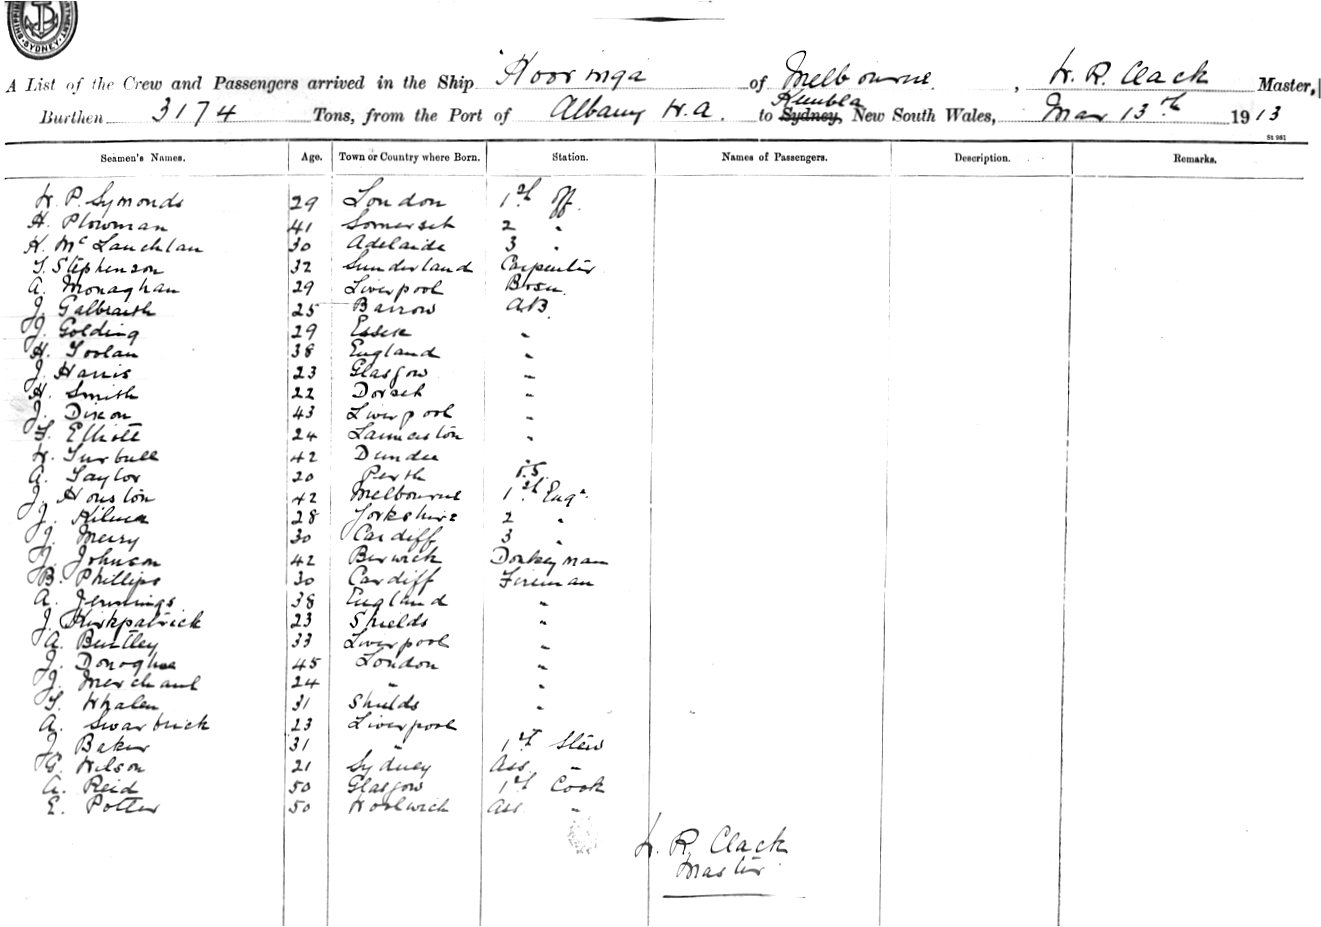 SYDNEY
A List of the Crew and Passengers arrived in the Ship Kooringa of Melbourne, W. R. Clack Master,
Burthen 3174 Tons, from the Port of Albany W.A. to Sydney, Kembla New South Wales, Mar 13th 1913
St 981
Seamen's Names. Age. Town or Country where Born. Station. Names of Passengers. Description. Remarks.
W. P. Symonds 29 London 1st Off.
H. Plowman 41 Somerset 2 "
H. McLauchlan 30 Adelaide 3 "
T. Stephenson 32 Sunderland Carpenter
A. Monaghan 29 Liverpool Bosn
J. Galbraith 25 Barrow AB
J. Golding 29 Essex "
H. Toolan 38 England "
J. Harris 23 Glasgow "
H. Smith 22 Dorset "
J. Dixon 43 Liverpool "
T. Elliott 24 Launceston "
W. Turbull 42 Dundee "
A. Taylor 20 Perth O.S.
J. Houston 42 Melbourne 1st Engr
J. 28 Yorkshire 2 "
J. Merry 30 Cardiff 3 "
J. Johnson 42 Berwick Donkeyman
B. Phillips 30 Cardiff Fireman
A. Jennings 38 England "
J. Kirkpatrick 23 Shields "
A. Bentley 33 Liverpool "
J. Donoghue 45 London "
J. Merchant 24 " "
T. Whalen 31 Shields "
A. Swarbrick 23 Liverpool
J. Baker 31 " 1st Stew
G. Wilson 21 Sydney Ass "
A. Reid 50 Glasgow 1st Cook
E. Potter 50 Woolwich Ass "
W. R. Clack
Master